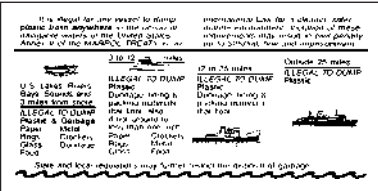 It is illegal for any vessel to dump
plastic trash anywhere in the ocean or
navigable waters of the United States.
Annex V of the MARPOL TREATY is an
International Law for a cleaner, safer
marine environment. Violation of these
requirements may result in civil penalty
up to $25,000, fine and imprisonment.
U.S. Lakes, Rivers,
Bays, Sounds and
3 miles from shore
ILLEGAL TO DUMP
Plastic & Garbage
Paper Metal
Rags Crockery
Glass Dunnage
Food
3 to 12 miles
ILLEGAL TO DUMP
Plastic
Dunnage, lining &
packing materials
that float, also
if not ground to
less than one inch:
Paper Crockery
Rags Metal
Glass Food
12 to 25 miles
ILLEGAL TO DUMP
Plastic
Dunnage, lining &
packing materials
that float
Outside 25 miles
ILLEGAL TO DUMP
Plastic
State and local regulations may further restrict the disposal of garbage